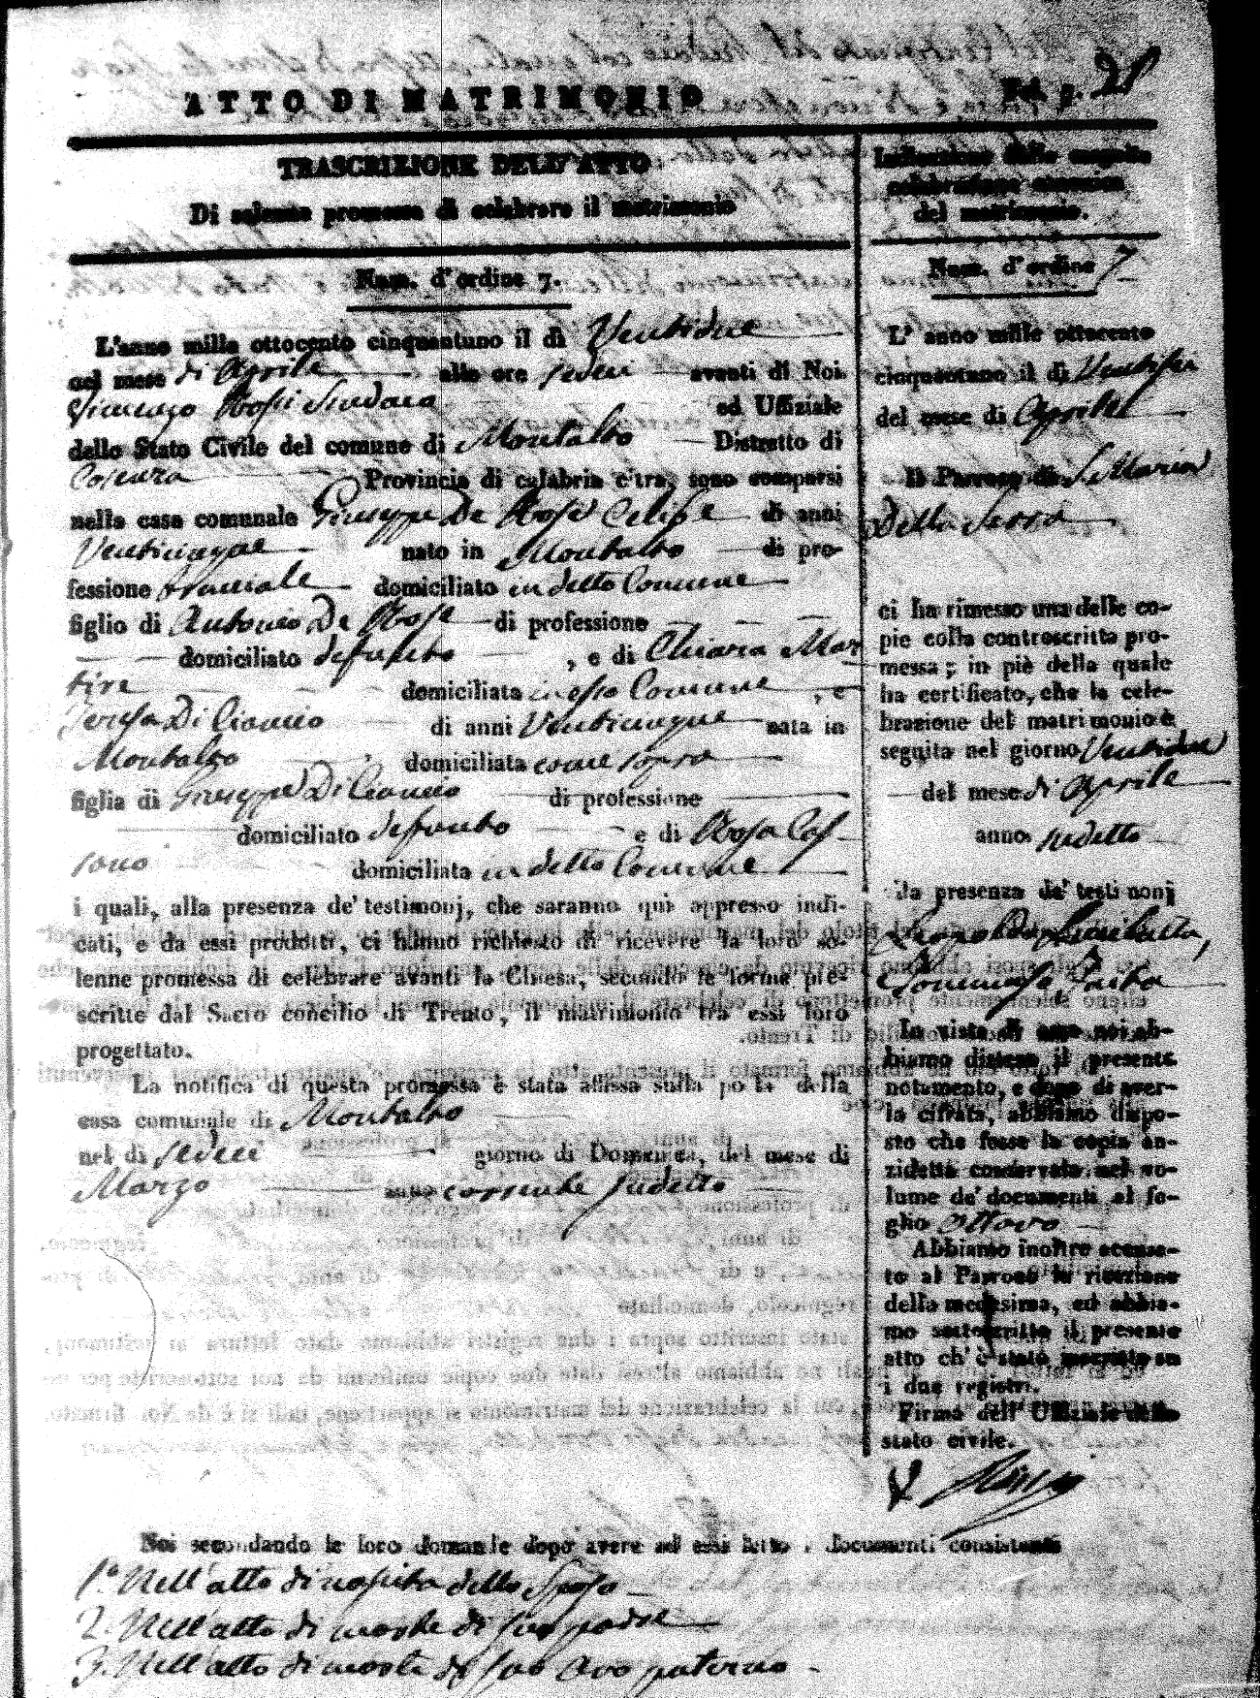 ATTO DI MATRIMONIO
TRASCRIZIONE DELL'ATTO
Di solenne promessa di celebrare il matrimonio
Num. d'ordine 7.
L'anno mille ottocento cinquantuno il dì Ventidue
nel mese di Aprile alle ore sedici avanti di Noi
Vincenzo Sindaco ed Uffiziale
dello Stato Civile del comune di Montalto Distretto di
Cosenza Provincia di calabria citra, sono comparsi
nella casa comunale Giuseppe De Rose di anni
Venticinque nato in Montalto di pro-
fessione domiciliato in detto Comune
figlio di Antonio De Rose di professione
domiciliato defunto , e di Chiara Mar
tire domiciliata in esso Comune , e
Teresa Di Ciancio di anni Venticinque nata in
Montalto , domiciliata come sopra
figlia di Giuseppe Di Ciancio di professione
domiciliato defunto e di Rosa Cas
domiciliata in detto Comune
i quali, alla presenza de' testimonj, che saranno qui appresso indi-
cati, e da essi prodotti, ci hanno richiesto di ricevere la loro so-
lenne promessa di celebrare avanti la Chiesa, secondo le forme pre-
scritte dal Sacro concilio di Trento, il matrimonio tra essi loro
progettato.
La notifica di questa promessa è stata affissa sulla porta della
casa comunale di Montalto
nel di sedici giorno di Domenica, del mese di
Marzo anno corrente sudetto
Indicazione della seguita
celebrazione canonica
del matrimonio.
Num. d'ordine 7
L'anno mille ottocento
cinquantuno il dì Ventisei
del mese di Aprile
Il Parroco di S. Maria
Della Serra
ci ha rimesso una delle co-
pie colla controscritta pro-
messa; in piè della quale
ha certificato, che la cele-
brazione del matrimonio è
seguita nel giorno Ventidue
del mese di Aprile
anno sudetto
da presenza de' testimonj
Leopoldo
Tommaso
In vista di essa noi ab-
biamo disteso il presente
notamento, e dopo di aver-
la cifrata, abbiamo dispo-
sto che fosse la copia an-
zidetta conservata nel vo-
lume de' documenti al fo-
glio ottavo
Abbiamo inoltre accusa-
to al Parroco la ricezione
della medesima, ed abbia-
mo sottoscritto il presente
atto ch'è stato inscritto su
i due registri.
Firma dell'Uffiziale dello
stato civile.
Noi secondando le loro domande dopo avere ad essi letto i documenti consistenti
1.° Nell'atto di nascita dello Sposo
2. Nell'atto di morte di suo padre
3. Nell'atto di morte di suo Avo paterno